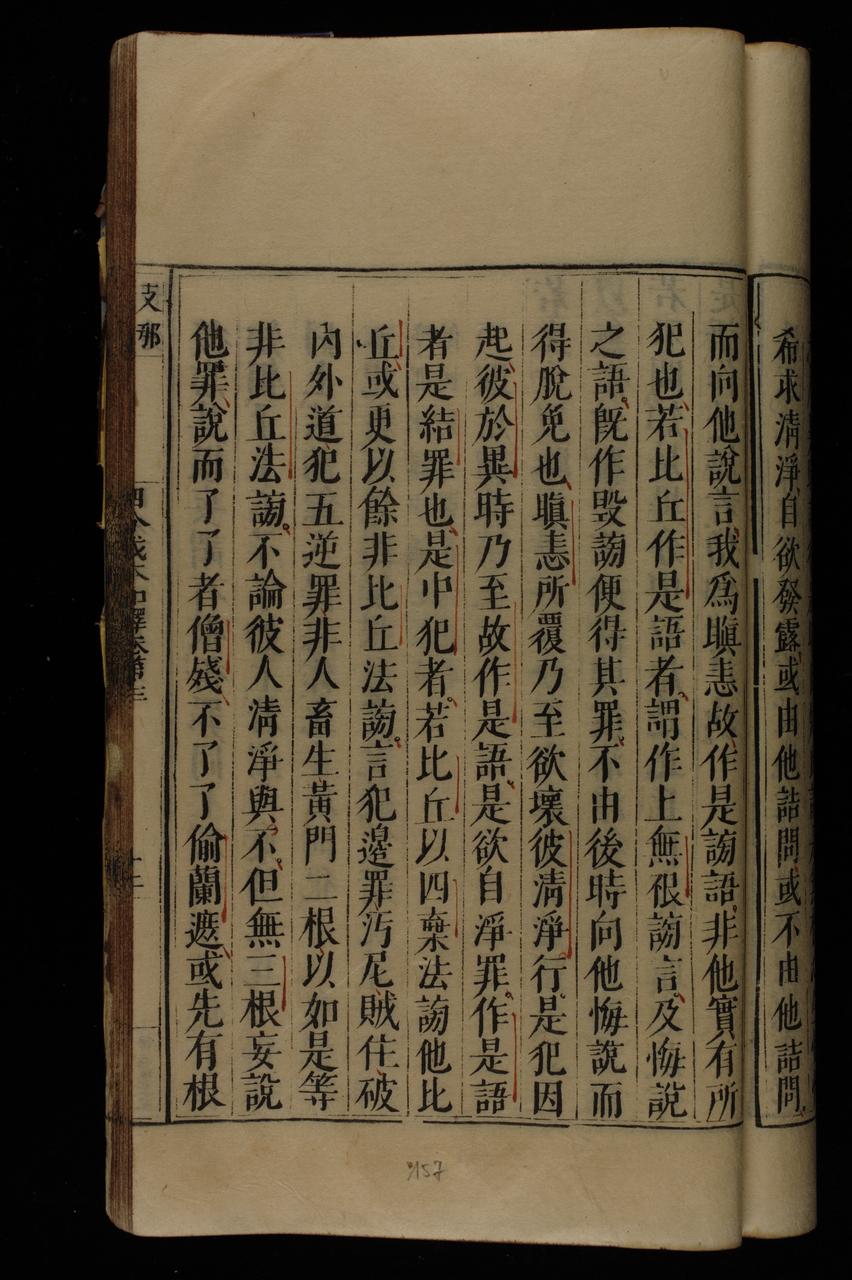 希求清淨自欲發露或由他詰問或不由他詰問
而向他說言我為瞋恚故作是謗語非他實有所
犯也若比丘作是語者謂作上無根謗言及悔說
之語旣作毀謗便得其罪不由後時向他悔說而
得脫免也瞋恚所覆乃至欲壞彼清淨行是犯因
起彼於異時乃至故作是語是欲自淨罪作是語
者是結罪也是中犯者若比丘以四棄法謗他比
丘或更以餘非比丘法謗言犯邊罪汚尼賊住破
內外道犯五逆罪非人畜生黃門二根以如是等
非比丘法謗不論彼人清淨與不但無三根妄說
他罪說而了了者僧殘不了了偷蘭遮或先有根
支那
四分戒本如釋卷第三
十二
157